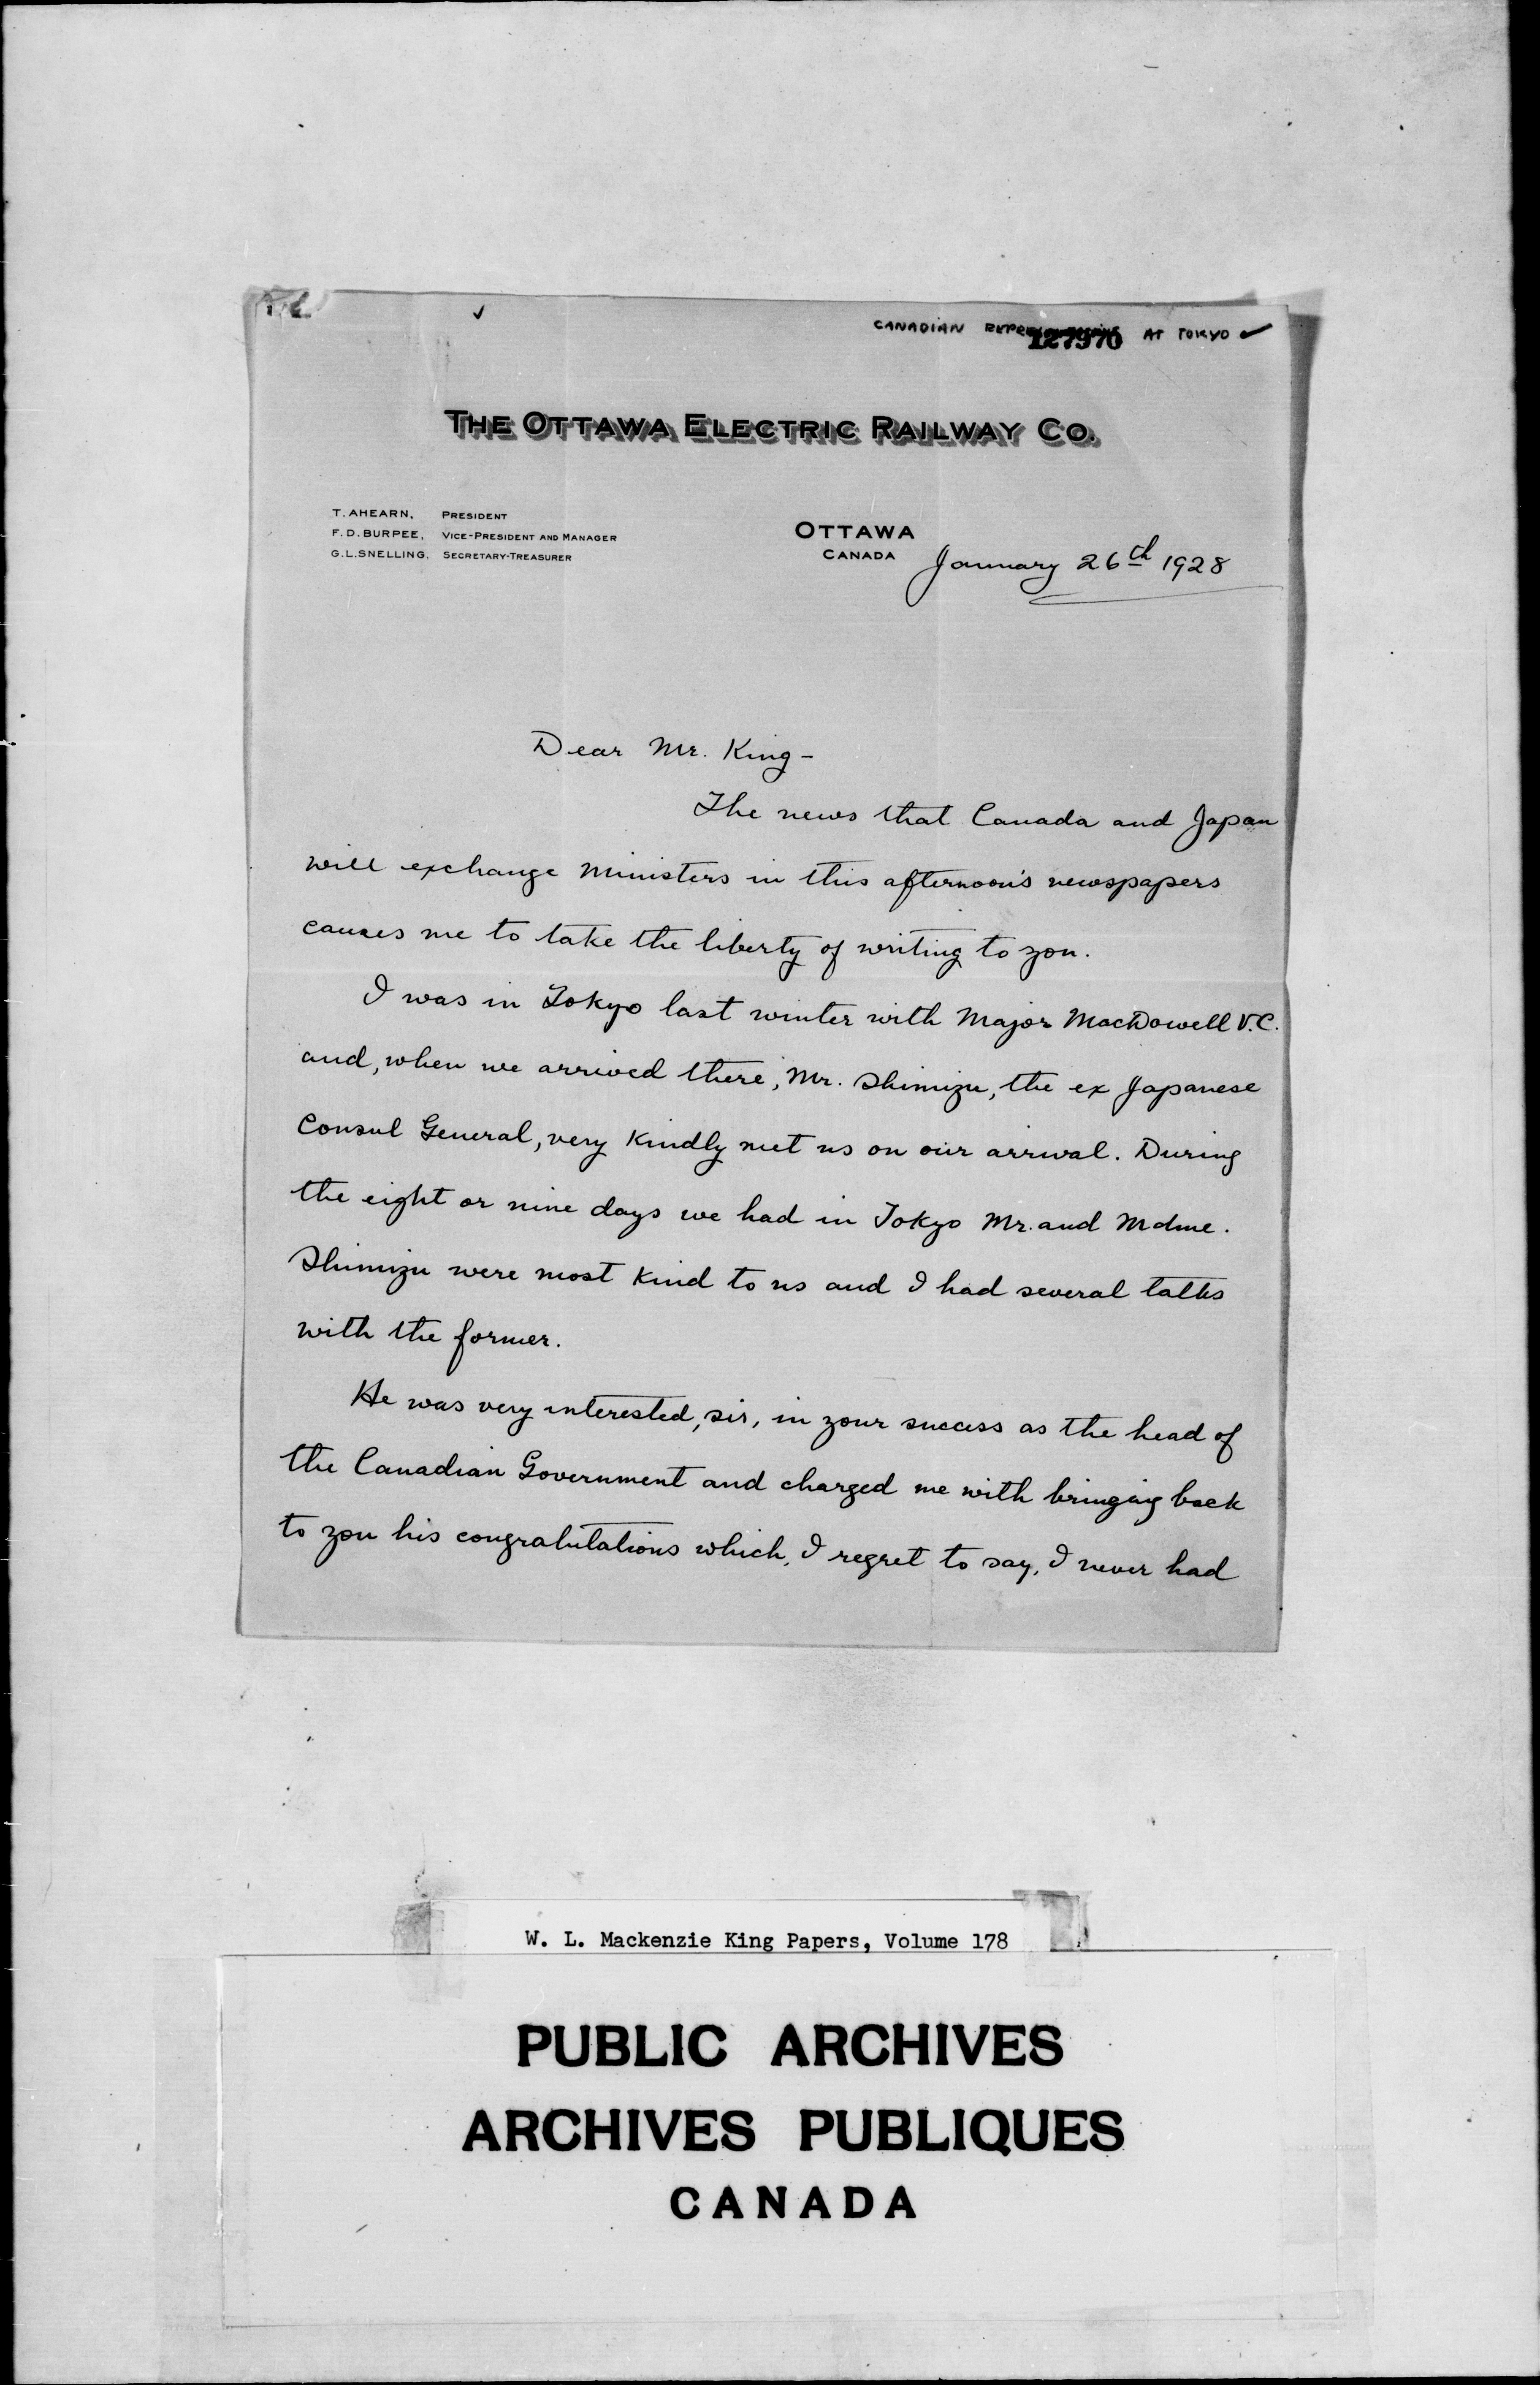 CANADIAN AT TOKYO
127970
THE OTTAWA ELECTRIC RAILWAY CO.
T. AHEARN, PRESIDENT
F. D. BURPEE, VICE-PRESIDENT AND MANAGER
G. L. SNELLING, SECRETARY-TREASURER
OTTAWA
CANADA
January 26th 1928
Dear Mr. King -
The news that Canada and Japan
will exchange ministers in this afternoon's newspapers
causes me to take the liberty of writing to you.
I was in Tokyo last winter with Major MacDowell V.C.
and, when we arrived there, Mr. Shimizu, the ex Japanese
Consul General, very kindly met us on our arrival. During
the eight or nine days we had in Tokyo Mr. and Mdme.
Shimizu were most kind to us and I had several talks
with the former.
He was very interested, sir, in your success as the head of
the Canadian Government and charged me with bringing back
to you his congratulations which, I regret to say, I never had
W. L. Mackenzie King Papers, Volume 178
PUBLIC ARCHIVES
ARCHIVES PUBLIQUES
CANADA